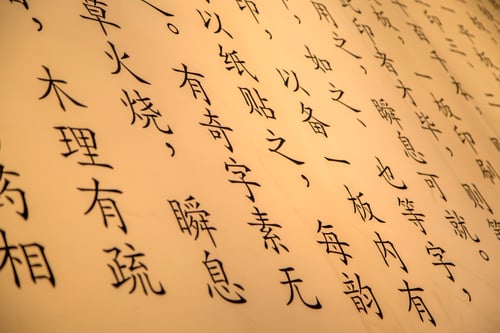 一板印刷
毕，则
用之，瞬息可就。
如之、也等字，
印，以备一板内有
以纸贴之，每韵
。有奇字素无
草火烧，瞬息
木理有疏
药相